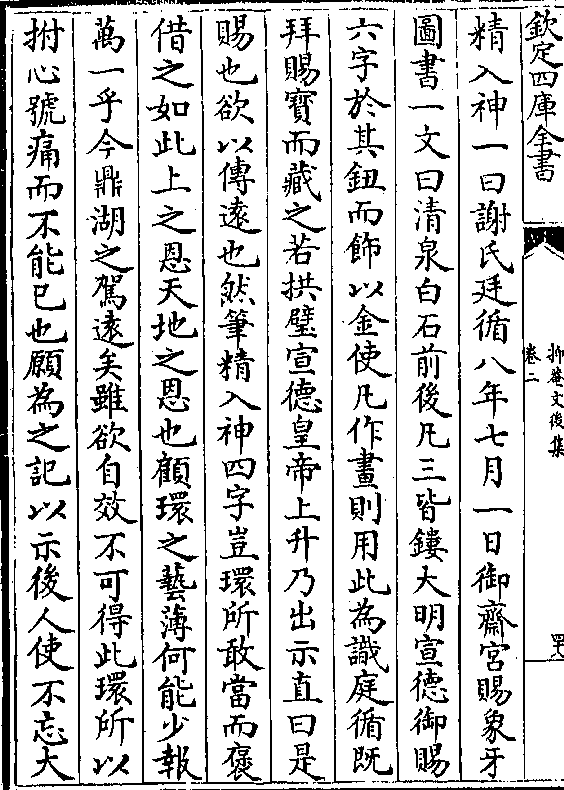 欽定四庫全書
抑菴文後集
卷二
罡
精入神一曰謝氏廷循八年七月一日御齋宮賜象牙
圖書一文曰清泉白石前後凡三皆鏤大明宣德御賜
六字於其鈕而飾以金使凡作畫則用此為識庭循既
拜賜寳而藏之若拱璧宣德皇帝上升乃出示直曰是
賜也欲以傳逺也然筆精入神四字豈環所敢當而褒
借之如此上之恩天地之恩也顧環之藝薄何能少報
萬一乎今鼎湖之駕逺矣雖欲自效不可得此環所以
拊心號痛而不能已也願為之記以示後人使不忘大